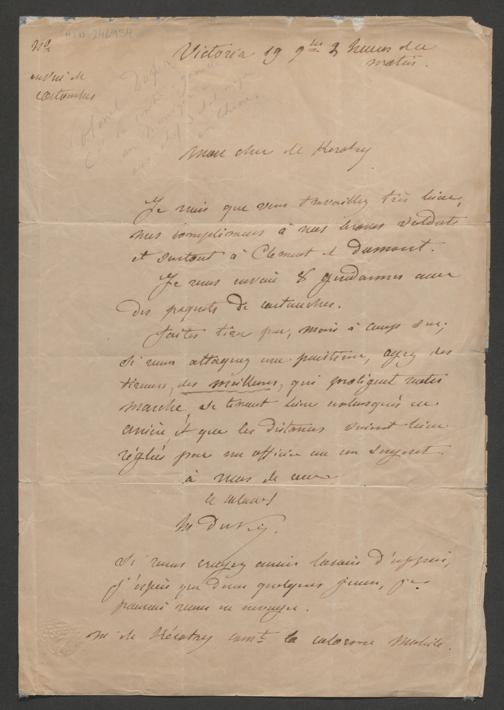 envoi de
cartouches
Victoria 19 9bre 2 heures du
matin.
Mon cher de Keratry
Je vois que vous travaillez très bien,
mes compliments à nos braves soldats
et surtout à Clément et Dumont.
Je vous envoie 8 gendarmes avec
des paquets de cartouches.
Faites tirer peu, mais à coups sûrs,
si vous attaquez une position, ayez des
tireurs, des meilleurs, qui protègent votre
marche, se tenant bien embusqués en
arrière, et que les distances soient bien
réglées par un officier ou un sergent.
à vous de cœur
le colonel
Du Pin.
Si vous croyez avoir besoin d'appui,
j'espère que dans quelques jours, je
pourrai vous en envoyer.
M de Kératry comt la colonne mobile.